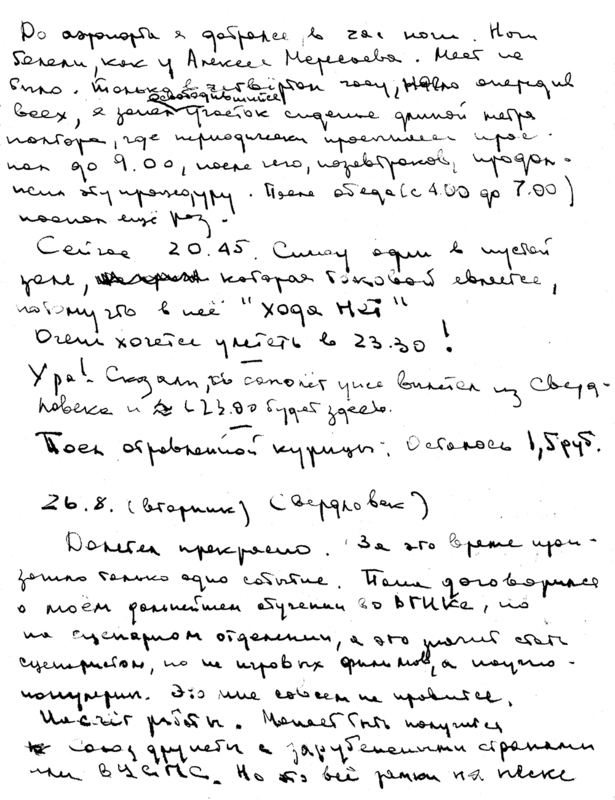 До аэропорта я добрался в час ночи. Ноги
болели, как у Алексея Мересьева. Мест не
было. Только в четвёртом часу, нагло опередив
всех, я занял освободившийся участок сиденья длиной метра
полтора, где периодически просыпаясь прос-
пал до 9.00, после чего, позавтракав, продол-
жил эту процедуру. После обеда (с 4.00 до 7.00)
поспал ещё раз.
Сейчас 20.45. Сижу один в пустой
зале, которая таковой является,
потому что в неё "хода нет"
Очень хочется улететь в 23.30!
Ура! Сказали, что самолёт уже вылетел из Сверд-
ловска и ≈ в 23.00 будет здесь.
Поел отравленной курицы. Осталось 1,5 руб.
26.8. (вторник) Свердловск)
Долетел прекрасно. За это время прои-
зошло только одно событие. Папа договорился
о моём дальнейшем обучении во ВГИКе, но
на сценарном отделении, а это значит стать
сценаристом, но не игровых фильмов, а научно-
популярн. Это мне совсем не нравится.
Насчёт работы. Может быть получится
Союз дружбы с зарубежными странами
или ВЦСПС. Но это всё замки на песке